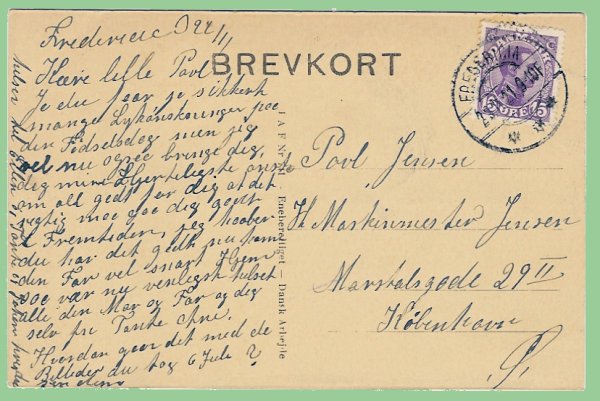 Fredericia D 22/11
BREVKORT
Kære lille Povl
Je du faar jo sikkert
mange Lykønskninger paa
din Fødselsdag men jeg
vel nu ogsaa bringe dig,
dig mine hjerteligste ønske
om alt godt for dig at det
rigtig maa gaa dig godt
i Fremtiden, jeg haaber
du har det godt nu kommer
din Far vel snart Hjem
og vær nu venligst hilset
alle din Mor og Far og dig
selv fra Tante
Hvordan gaar det med de
Billeder du tog 6 Juli ?
FREDERICIA
15 ØRE 15
Eneberettiget — Dansk Arbejde
Povl Jensen
Hr Maskinmester Jensen
Marstalsgade 29 II
København
Ø.